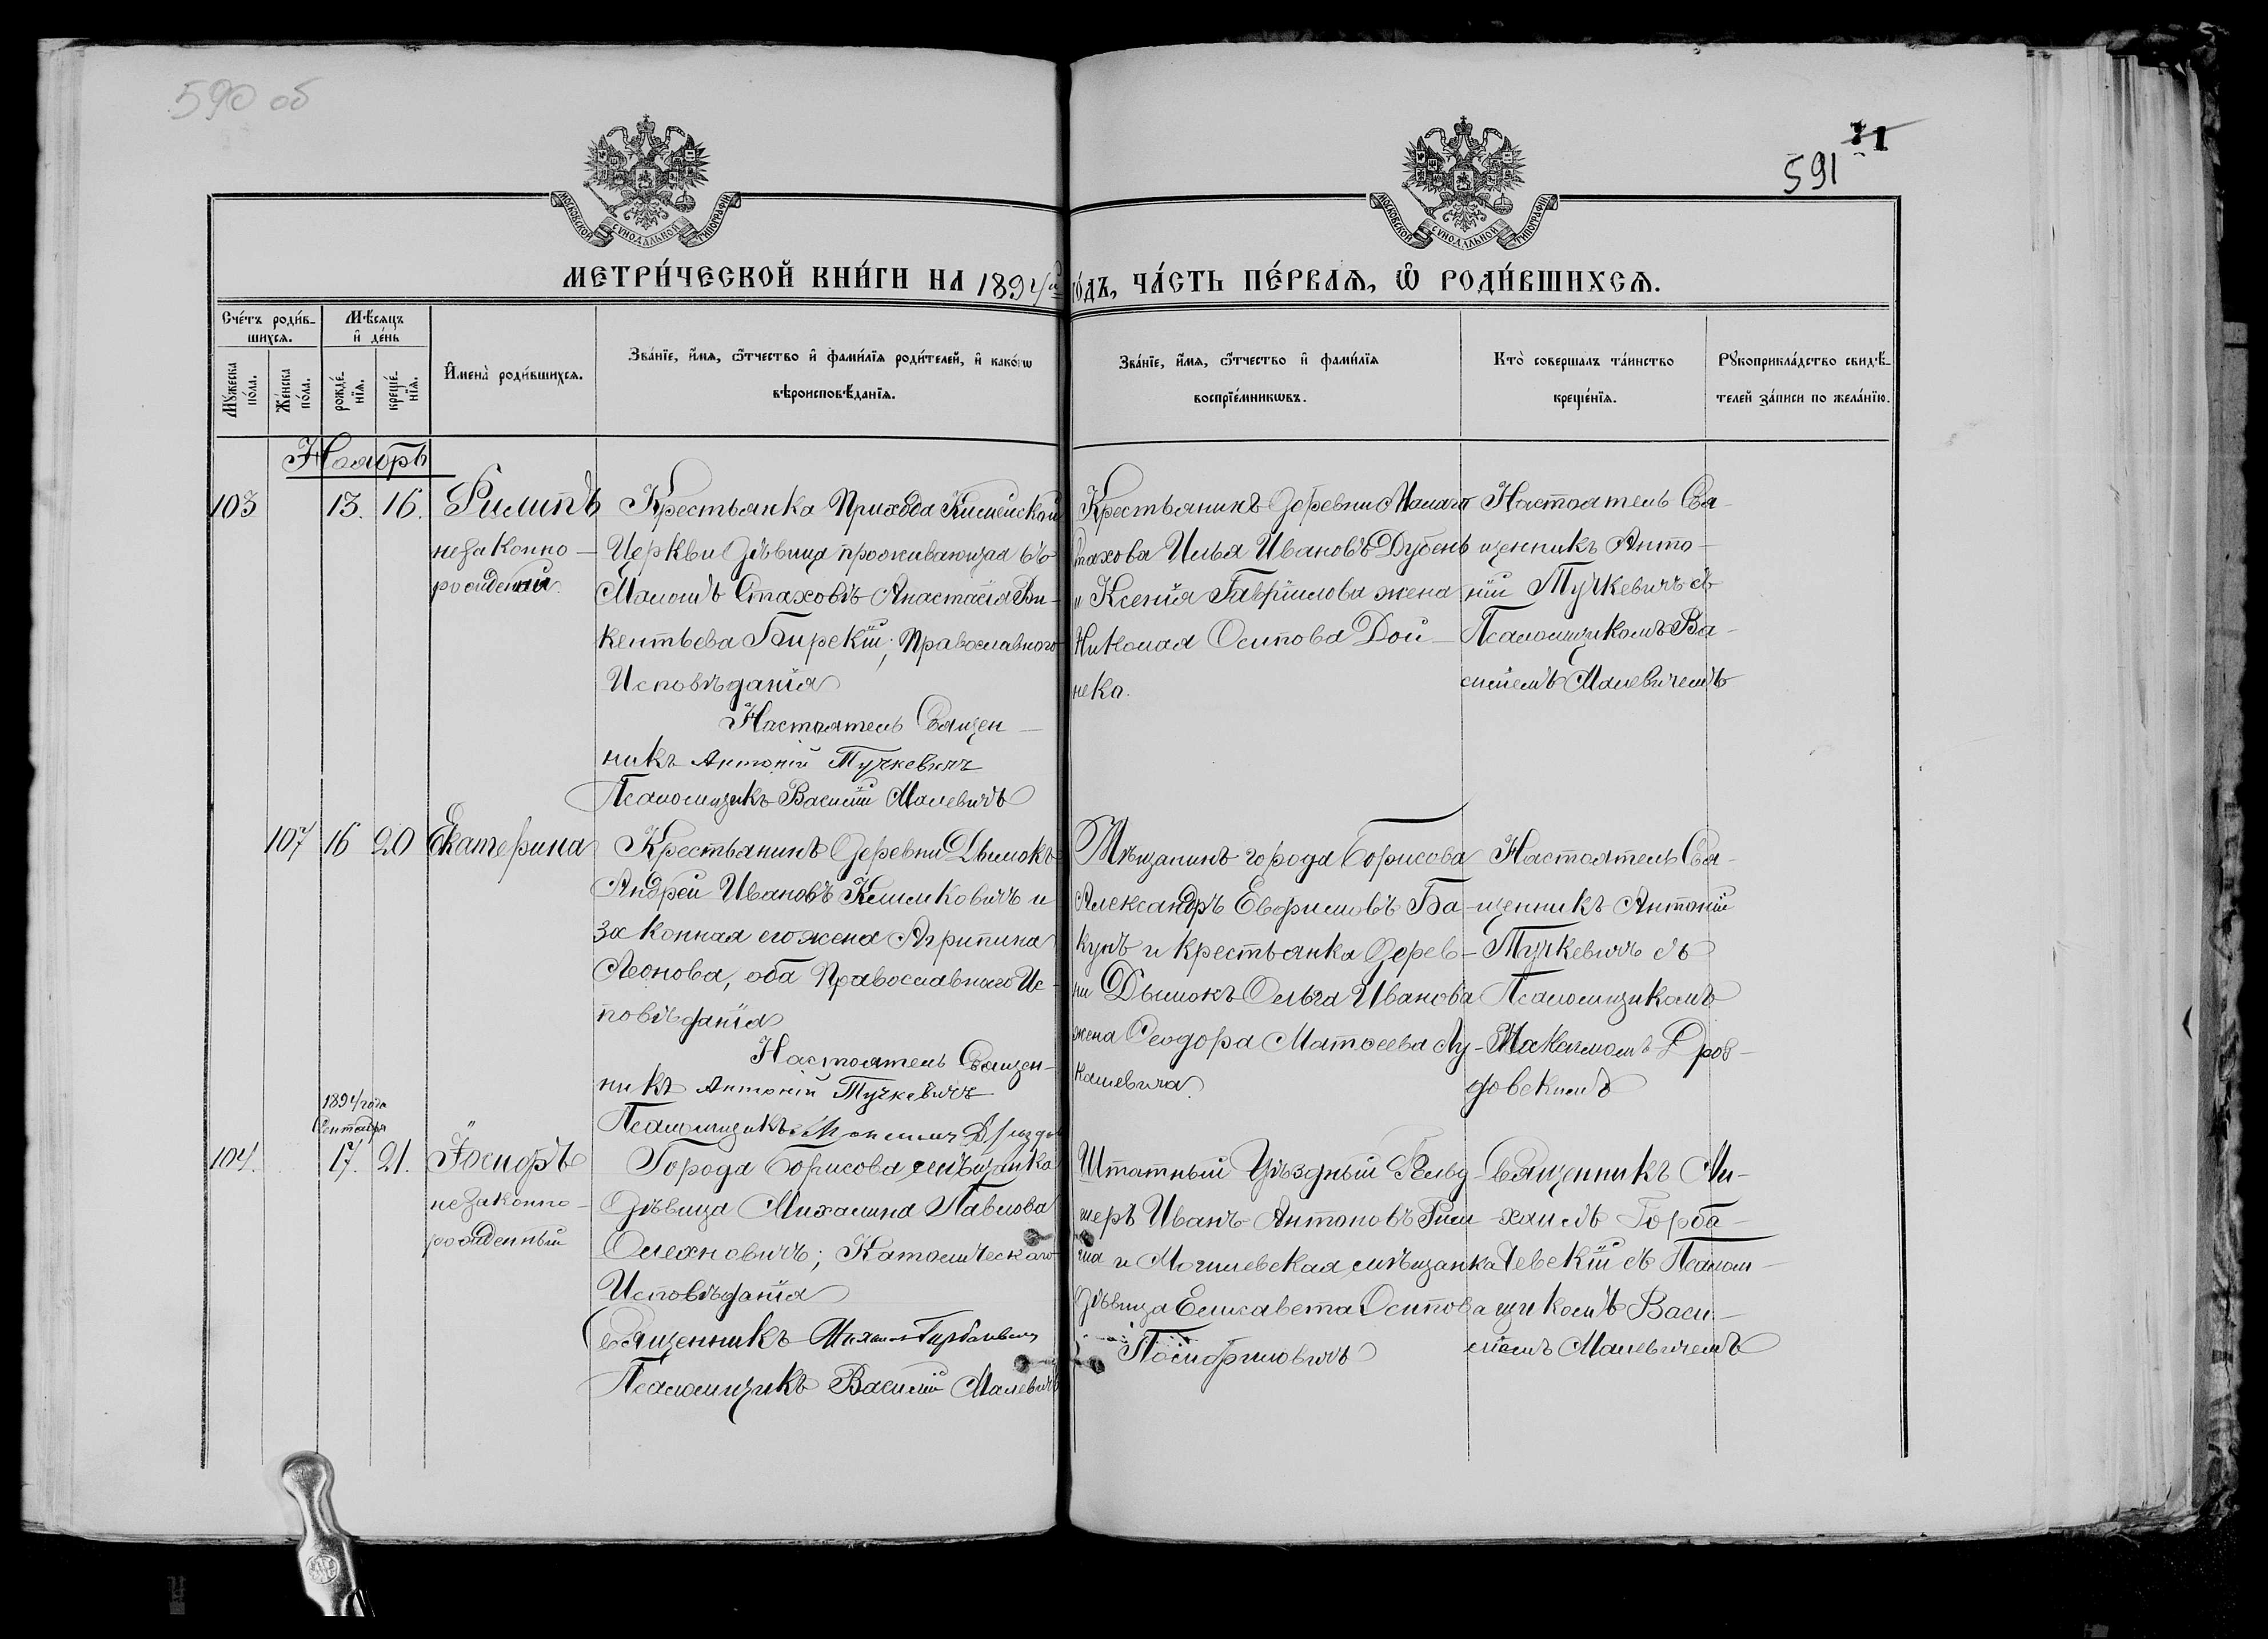 590 об
71
591
МОСКОВСКОЙ СѴНОДАЛЬНОЙ ТИПОГРАФІИ
МОСКОВСКОЙ СѴНОДАЛЬНОЙ ТИПОГРАФІИ
МЕТРИ́ЧЕСКОЙ КНИ́ГИ НА 1894й го́дъ, ЧА́СТЬ ПЕ́РВАѦ, Ѡ҆ РОДИ́ВШИХСѦ.
Сче́тъ роди́в-
шихсѧ.
Мѣ́сѧцъ
и҆ де́нь
Мꙋ́жеска по́ла.
Же́нска по́ла.
рожде́-
нїѧ.
креще́-
нїѧ.
И҆мена̀ роди́вшихсѧ.
Зва́нїе, и҆́мѧ, ѻ҆́тчество и҆ фами́лїѧ роди́телей, и҆ како́гѡ
вѣроисповѣ́данїѧ.
Зва́нїе, и҆́мѧ, ѻ҆́тчество и҆ фами́лїѧ
воспрїе́мникѡвъ.
Кто̀ соверша́лъ та́инство
креще́нїѧ.
Рꙋкоприкла́дство свидѣ́-
телей за́писи по жела́нїю.
Ноябрь
103
13. 16.
Филиппъ
незаконно-
рожденный.
Крестьянка Прихода Кищинской
Церкви Дѣвица проживающая въ
Маломъ Стаховѣ Анастасія Ви-
кентьева Бирекій; Православного
Исповѣданія
Настоятель Священ-
никъ Антоній Тучкевичъ
Псаломщикъ Василій Малевичъ
Крестьянинъ Деревни Малаго
Стахова Илья Ивановъ Дубень
и Ксенія Гаврилова жена
Николая Осипова Дой-
нека.
Настоятель Свя-
щенникъ Анто-
ній Тучкевичъ съ
Псаломщикомъ Ва-
силіемъ Малевичемъ
107 16 20
Екатерина
Крестьянинъ Деревни Дымокъ
Андрей Ивановъ Климковичъ и
законная его жена Агрипина
Леонова, оба Православнаго Ис-
повѣданія
Настоятель Священ-
никъ Антоній Тучкевичъ
Псаломщикъ
Мѣщанинъ города Борисова
Александръ Евфимовъ Ба-
кунъ и крестьянка Дерев-
ни Дымокъ Ольга Иванова
жена Ѳеодора Матѳеева Лу-
кашевича.
Настоятель Свя-
щенникъ Антоній
Тучкевичъ съ
Псаломщикомъ
Максимомъ Дроз-
довскимъ
1894 года
Сентября
104.
17. 21.
незаконно-
рожденный
Города Борисова мѣщанка
Дѣвица Михалина Павлова
Олехновичъ; Католическаго
Исповѣданія
Священникъ Михаилъ
Псаломщикъ Василій Малевичъ
Штатный Уѣздный Фельд-
шеръ Иванъ Антоновъ
и Могилевская мѣщанка
Дѣвица Елисавета Осипова
Настоятель
Священникъ Ми-
хаилъ Горба-
чевскій съ Псалом-
щикомъ Васи-
ліемъ Малевичемъ